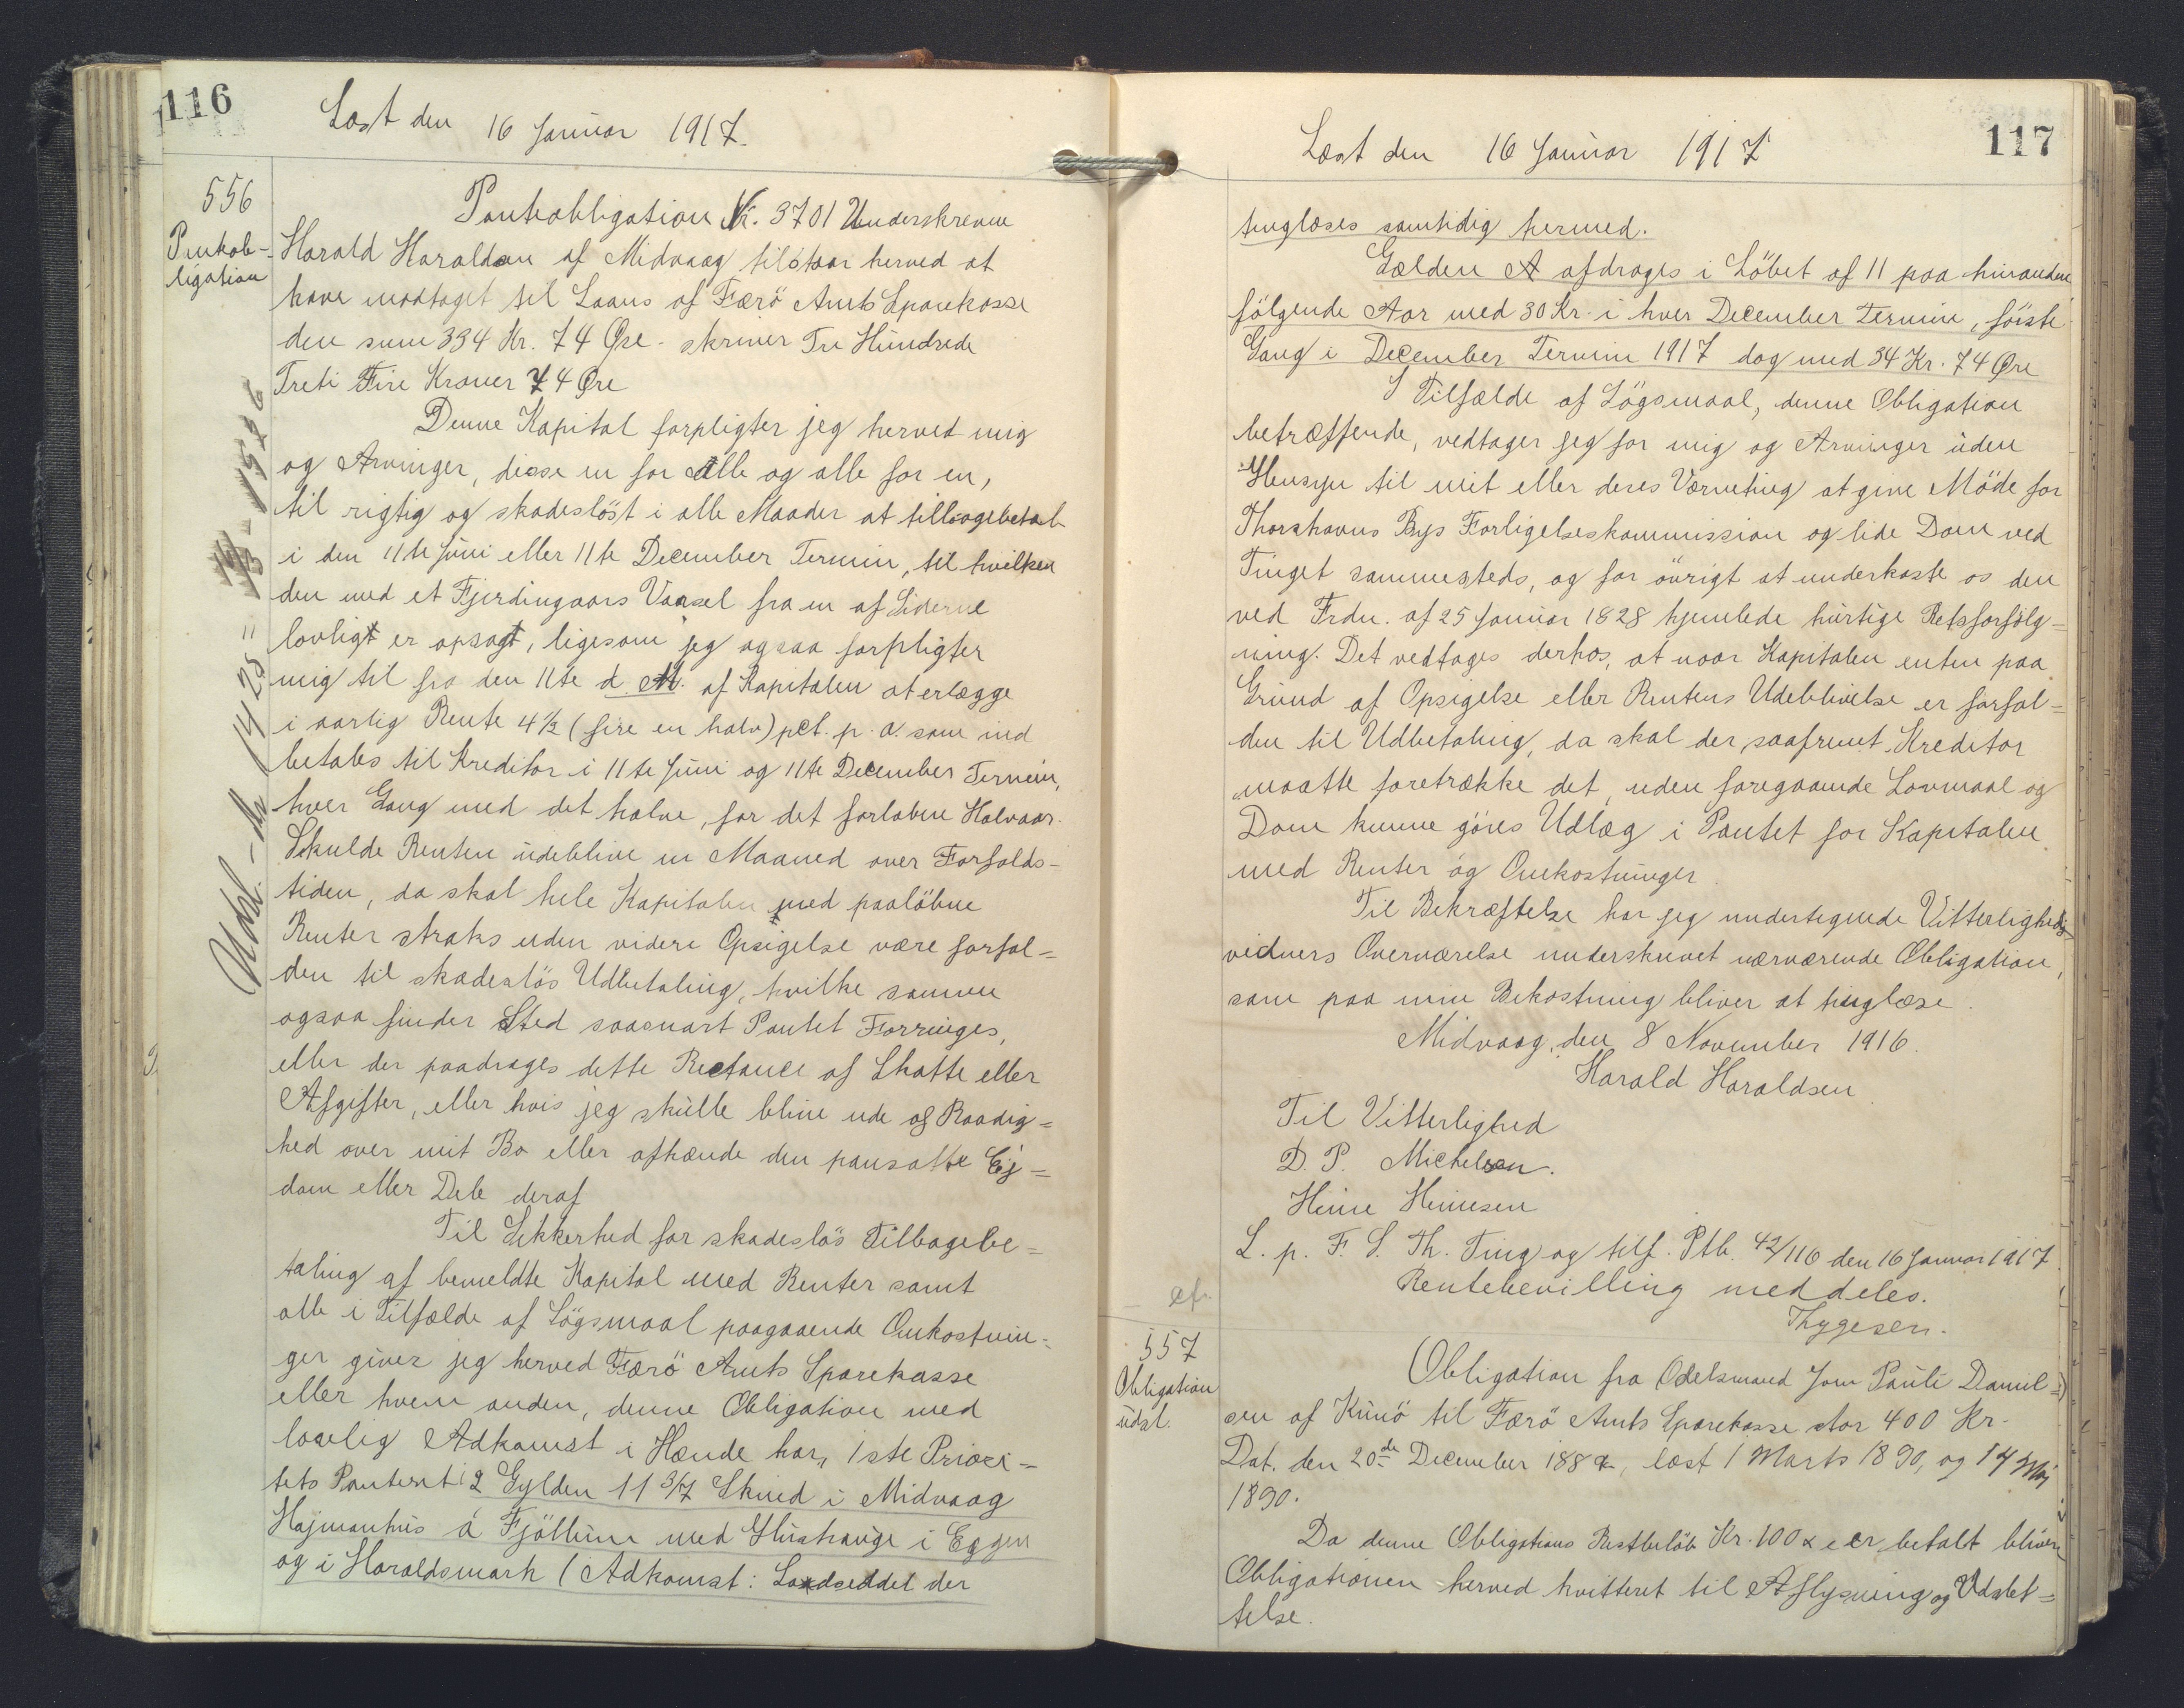 116
Læst den 16 Januar 1917.
556
Pantob-
ligation
Pantobligation Nr. 3701 Underskrevne
Harald Haraldsen af Midvaag tilstaar herved at
have modtaget til Laans af Færö Amts Sparekasse
den sum 334 Kr. 74 Øre - skriver Tre Hundrede
Treti Fire Kroner 74 Øre
Denne Kapital forpligter jeg herved mig
og Arvinger, disse en for alle og alle for en,
til rigtig og skadeslöst i alle Maader at tilbagebetale
i den 11te Juni eller 11te December Termin, til hvilken
den med et Fjerdingaars Varsel fra en af Siderne
lovligt er opsagt, ligesom jeg ogsaa forpligter
mig til fra den 11te d. M. af Kapitalen at erlægge
i aarlig Rente 4½ (fire en halv) pct. p. a. som ind
betales til Kreditor i 11te Juni og 11te December Termin,
hver Gang med det halve, for det forløbne Halvaar.
Skulde Renten udeblive en Maaned over Forfalds-
tiden, da skal hele Kapitalen med paalöbne
Renter straks uden videre Opsigelse være forfal=
den til skadeslös Udbetaling, hvilke samme
ogsaa finder Sted saasnart Pantet Forringes,
eller der paadrages dette Restance af Skatte eller
Afgifter, eller hvis jeg skulle blive ude af Raadig=
hed over mit Bo eller afhænde den pansatte Ej=
dom eller Dele deraf
Til Sikkerhed for skadeslös Tilbagebe=
taling af bemeldte Kapital med Renter samt
alle i Tilfælde af Lögsmaal paagaaende Omkostnin=
ger giver jeg herved Færö Amts Sparekasse
eller hvem anden, denne Obligation med
lovlig Adkomst i Hænde har, 1ste Priori=
tets Panteret i 2 Gylden 11 3/7 Skind i Midvaag
Højmanhus á Fjöllum med Hushauge i Eggen
og i Haraldsmark (Adkomst: Landseddel der
Udsl. - 14 25
117
Læst den 16 Januar 1917
tinglæses samtidig hermed.
Gælden A afdrages i Löbet af 11 paa hinanden
fölgende Aar med 30 Kr. i hver December Termin, förste
Gang i December Termin 1917 dog med 34 Kr. 74 Øre
I Tilfælde af Lögsmaal, denne Obligation
betræffende, vedtager jeg for mig og Arvinger uden
Hensyn til mit eller deres Værneting at give Möde for
Thorshavns Bys Forligelseskommission og lide Dom ved
Tinget sammesteds, og for övrigt at underkaste os den
ved Frdn. af 25 Januar 1828 hjemlede hurtige Retsforfölg=
ning. Det vedtages derhos, at naar Kapitalen enten paa
Grund af Opsigelse eller Rentens Udeblivelse er forfal=
den til Udbetaling, da skal der, saafremt Kreditor
maatte foretrække det, uden foregaaende Lovmaal og
Dom kunne göres Udlæg i Pantet for Kapitalen
med Renter og Omkostninger
Til Bekræftelse har jeg undertegnede Vitterligheds
vidners Overværelse underskrevet nærværende Obligation,
som paa min Bekostning bliver at tinglæse.
Midvaag, den 8 November 1916.
Harald Haraldsen
Til Vitterlighed
D. P. Michelsen.
Heine Heinesen
L. p. F. S. Th. Ting og tilf. Ptb. 42/116 den 16 Januar 1917
Rentebevilling meddeles.
Thygesen.
efr.
557
Obligation
udsl.
Obligation fra Odelsmand Jom Pauli Daniel=
sen af Kunö til Færö Amts Sparekasse stor 400 Kr.
Dat. den 20de December 188, læst 1 Marts 1890, og 14 Maj
1890.
Da denne Obligations Restbelöb Kr. 100 er betalt bliver
Obligationen herved kvitteret til Aflysning og Udslet=
telse.